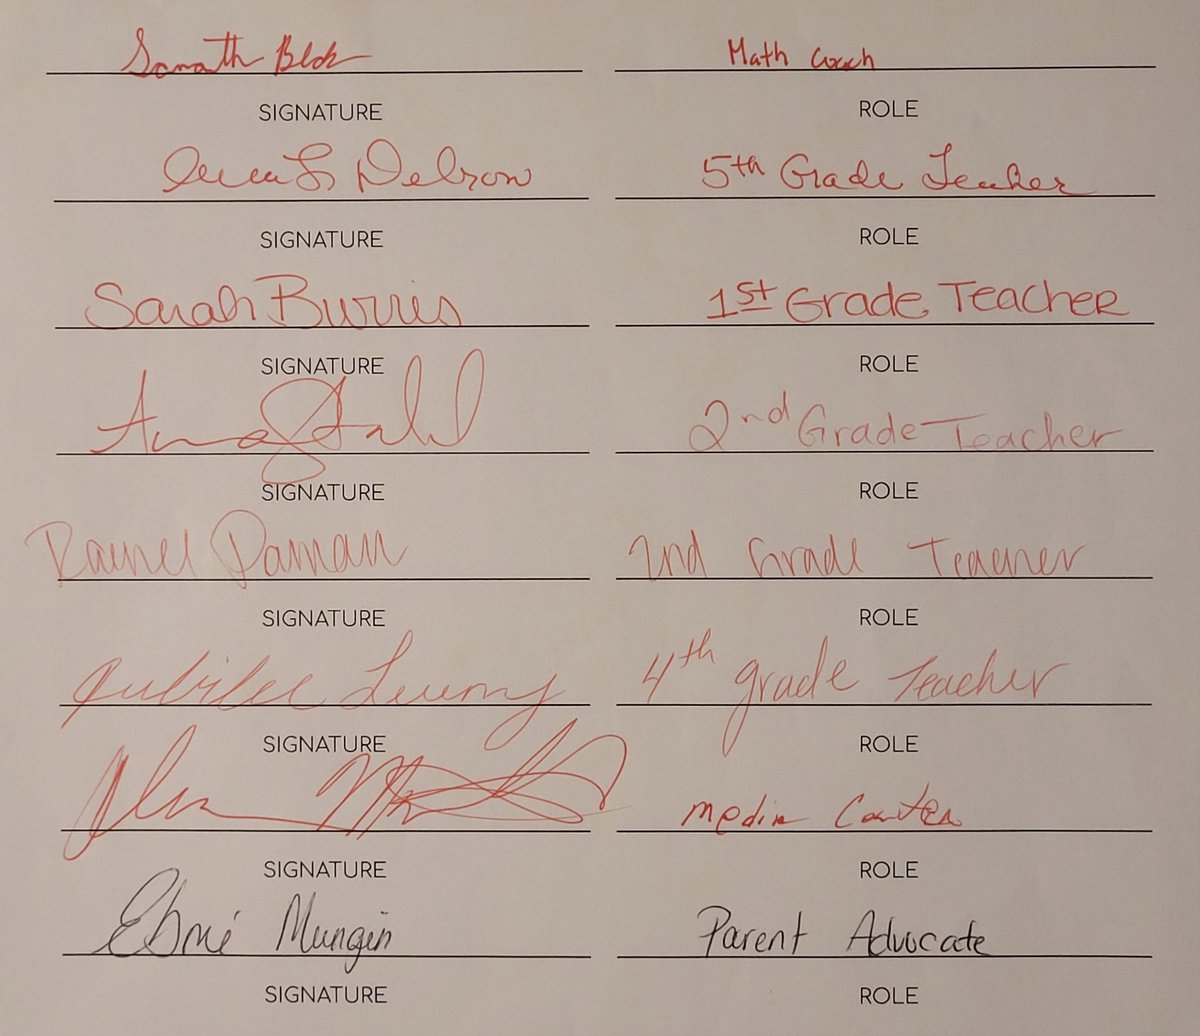 Math Coach
SIGNATURE ROLE
5th Grade Teacher
SIGNATURE ROLE
Sarah Burris 1st Grade Teacher
SIGNATURE ROLE
Anna Stahl 2nd Grade Teacher
SIGNATURE ROLE
Rachel 2nd Grade Teacher
SIGNATURE ROLE
Jubilee 4th grade Teacher
SIGNATURE ROLE
Media Center
SIGNATURE ROLE
Eboné Mungin Parent Advocate
SIGNATURE ROLE